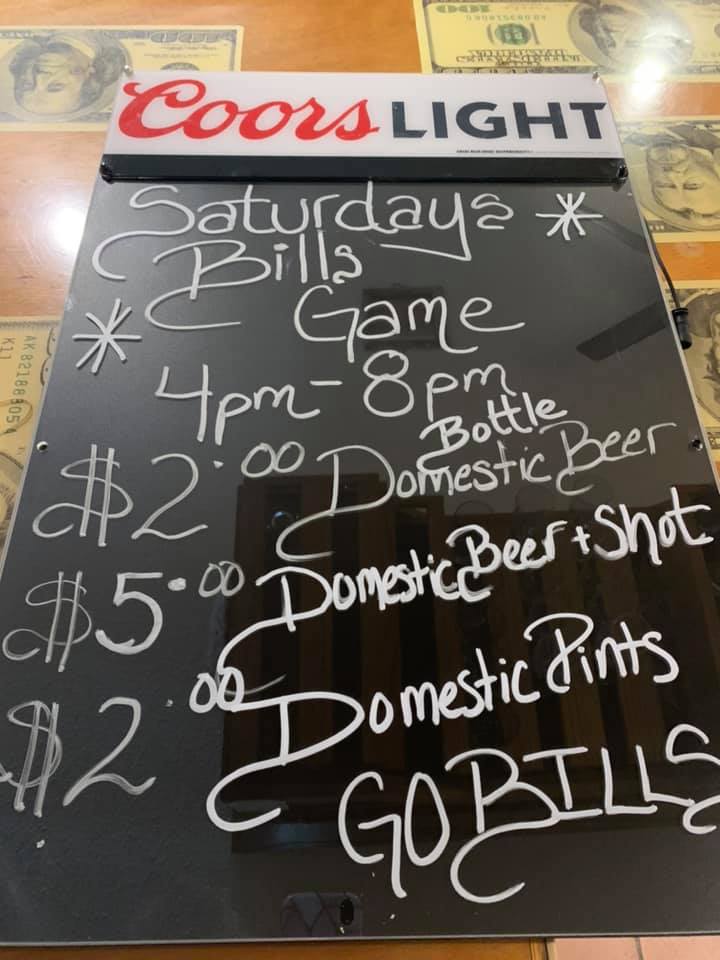 Coors LIGHT
Saturdays *
Bills
* Game
4pm-8pm
Bottle
$2.00 Domestic Beer
$5.00 Domestic Beer + Shot
$2.00 Domestic Pints
GO BILLS
100
AK82188805
K11